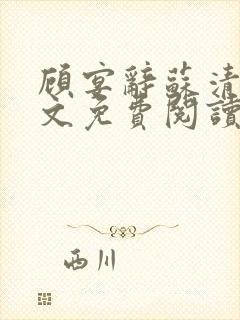 顾宴辭蘇清
文免費閱讀
西川